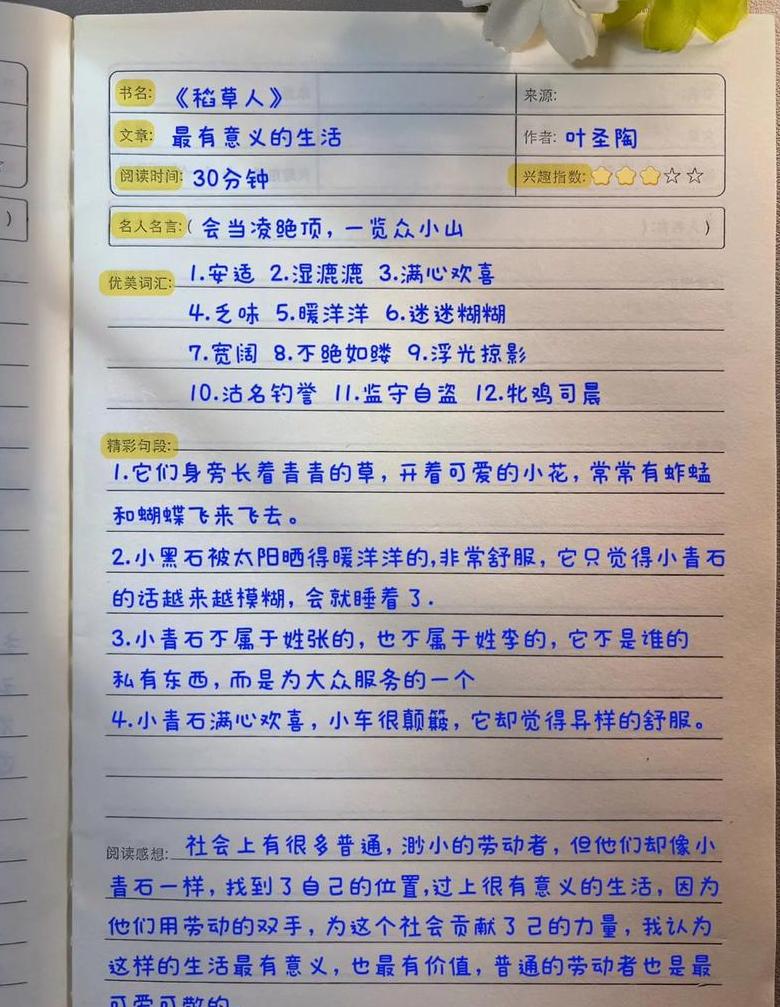 书名: 《稻草人》 来源:
文章: 最有意义的生活 作者: 叶圣陶
阅读时间: 30分钟 兴趣指数:
名人名言:( 会当凌绝顶，一览众小山 )
优美词汇: 1.安适 2.湿漉漉 3.满心欢喜
4.乏味 5.暖洋洋 6.迷迷糊糊
7.宽阔 8.不绝如缕 9.浮光掠影
10.沽名钓誉 11.监守自盗 12.牝鸡司晨
精彩句段:
1.它们身旁长着青青的草，开着可爱的小花，常常有蚱蜢
和蝴蝶飞来飞去。
2.小黑石被太阳晒得暖洋洋的,非常舒服，它只觉得小青石
的话越来越模糊，会就睡着了.
3.小青石不属于姓张的，也不属于姓李的，它不是谁的
私有东西，而是为大众服务的一个
4.小青石满心欢喜，小车很颠簸，它却觉得异样的舒服。
阅读感想: 社会上有很多普通，渺小的劳动者，但他们却像小
青石一样，找到了自己的位置,过上很有意义的生活，因为
他们用劳动的双手，为这个社会贡献了己的力量，我认为
这样的生活最有意义，也最有价值，普通的劳动者也是最
可爱可敬的